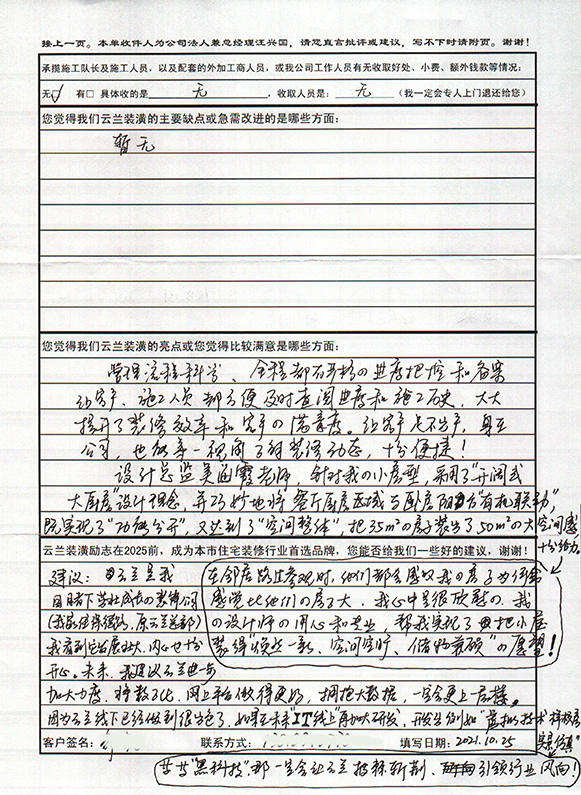 接上一页。本单收件人为公司法人兼总经理汪兴国，请您直言批评或建议，写不下时请附页。谢谢！
承揽施工队长及施工人员，以及配套的外加工商人员，或我公司工作人员有无收取好处、小费、额外钱款等情况：
无☑ 有□ 具体收的是 无 ，收取人员是： 无 （我一定会专人上门退还给您）
您觉得我们云兰装潢的主要缺点或急需改进的是哪些方面：
暂无
您觉得我们云兰装潢的亮点或您觉得比较满意是哪些方面：
管理流程科学、全程都有严格的进度把控和备案
让客户、施工人员都方便及时查阅进度和施工历史，大大
提升了装修效率和客户的满意度。让客户足不出户，身在
公司，也能第一视阅了解装修动态，十分便捷！
设计总监吴涵霞老师，针对我的小房型，采用了“开阔式
大厨房”设计理念，并巧妙地将“客厅厨房区域与卧房阳台“有机联动”，
既实现了“功能分开”，又达到了“空间整体”，把35m²的房子装出了50m²的大空间感
十分给力
云兰装潢励志在2025前，成为本市住宅装修行业首选品牌，您能否给我们一些好的建议，谢谢！
建议：云兰是我
在邻居路过参观时，他们都会感叹我的房子为什么
感觉比他们的房子大，我心中是很欣慰的，我
的设计师的用心和专业，帮我实现了把小屋
装得“焕然一新、空间宽旷、储物兼顾”的愿望！
我看到它发展壮大，内心也十分
开心。未来，我建议云兰进一步
加大力度，将数字化、网上平台做得更好，拥抱大数据，一定会更上一层楼。
因为云兰线下已经做到很出色了，如果在未来“IT线上”再加大研发，开发出例如“虚拟技术样板房
实景仿真”
等等“黑科技”，那一定会让云兰披荆斩棘、引领行业风向！
客户签名： 联系方式： 填写日期：2021.10.25